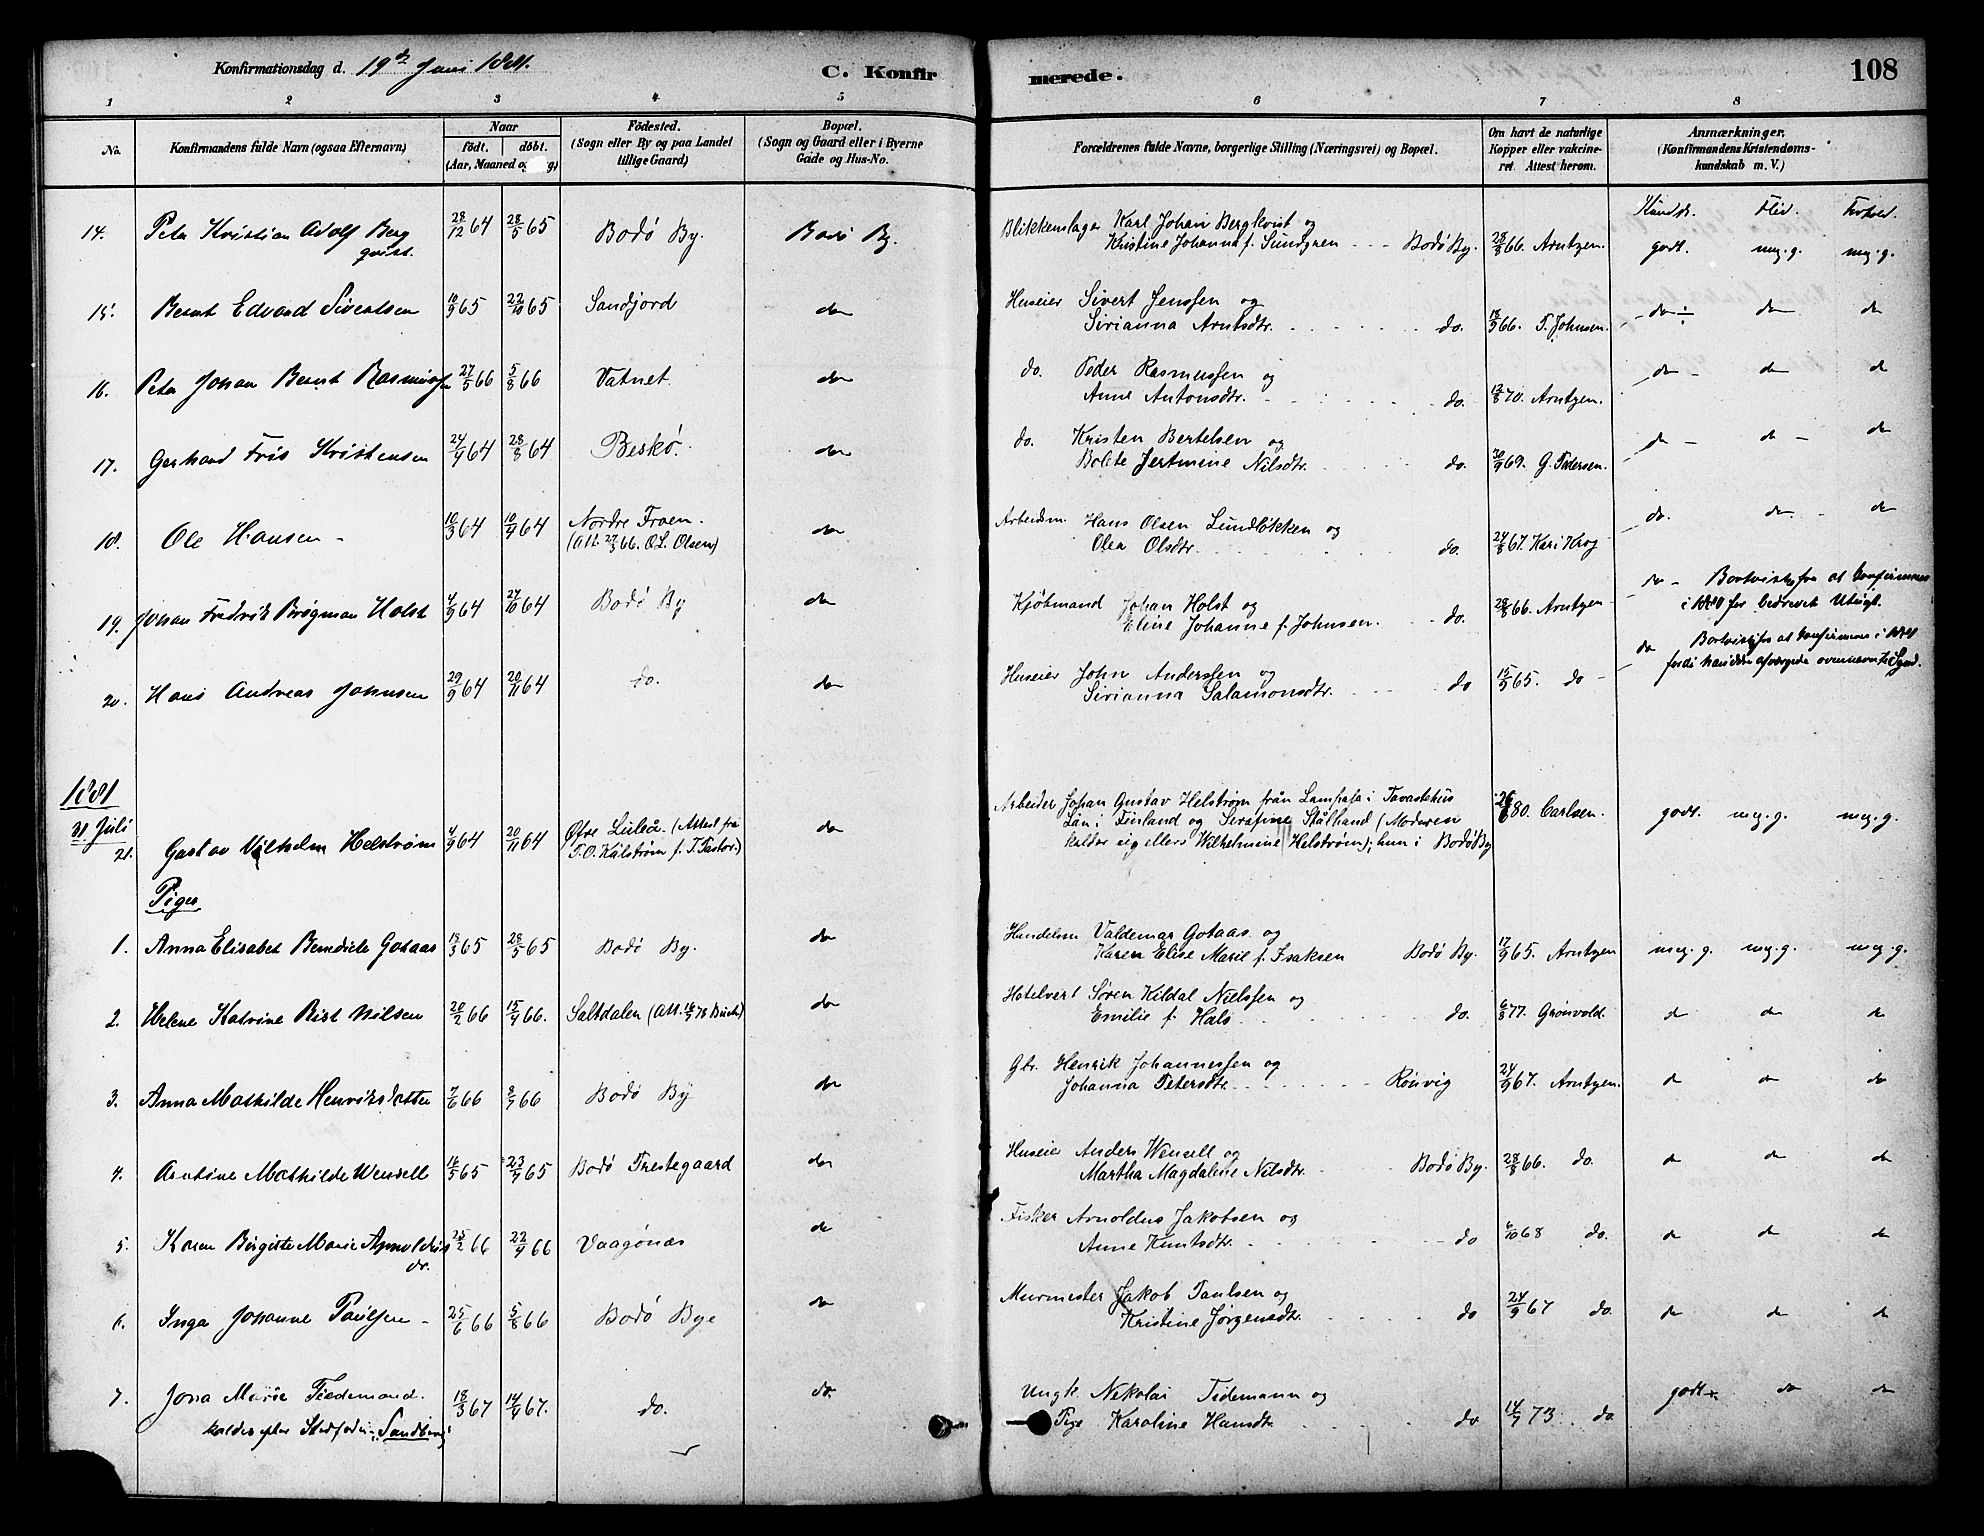 Konfirmationsdag d. 19de Juni 1881.
C. Konfirmerede.
108
1 2 3 4 5 6 7 8
No.
Konfirmandens fulde Navn (ogsaa Efternavn)
Naar
født. døbt.
(Aar, Maaned og
Fødested.
(Sogn eller By og paa Landet
tillige Gaard)
Bopæl.
(Sogn og Gaard eller i Byerne
Gade og Hus-No.
Forældrenes fulde Navne, borgerlige Stilling (Næringsvei) og Bopæl.
Om havt de naturlige
Kopper eller vakcine-
ret. Attest herom.
Anmærkninger.
(Konfirmandens Kristendoms-
kundskab m. V.)
Kundsk. Flid. Forhold.
14. Peter Kristian Adolf Berg 28/12 64 28/5 65 Bodø By. Bodø By. Blikkenslager Karl Johan Bergkvist og
qvist. Kristine Johanna f. Sundgren - - - Bodø By. 28/8 66. Arntzen. godt. meg. g. meg. g.
15. Bernt Edvard Sivertsen 10/9 65 22/10 65 Sandjord do Huseier Sivert Jenssen og
Sirianna Arntsdtr. do. 18/9 66. T. Johnsen. do ÷ do do
16. Peter Johan Bernt Rasmussen 27/5 66 5/8 66 Vatnet. do do. Peder Rasmussen og
Anne Antonsdtr. do. 12/8 70. Arntzen. do - do do
17. Gerhard Friis Kristensen 24/4 64 28/8 64 Beskø. do do. Kristen Bertelsen og
Bolete Jertmine Nilsdtr. do. 30/9 69. G. Pedersen. do - do - do
18. Ole Hansen - 10/3 64 10/4 64 Nordre Froen. do Arbeidsm. Hans Olsen Lundløkken og
(Att. 27/3 66. O.L. Olsen) Olea Olsdtr. do. 24/8 67. Kari Krog do. do. - do
19. Johan Fredrik Brøgman Holst 4/9 64 27/10 64 Bodø By do Kjøbmand Johan Holst og
Eline Johanne f. Johnsen. - do. 28/8 66. Arntzen - do - Bortvist fra at Confirmeres
i 1880 for bedrevet Utugt.
20. Hans Andreas Johnsen 29/9 64 20/11 64 do. do Huseier John Anderssen og
Sirianna Salamonsdtr. do 15/9 65. do - do Bortvist fra at Confirmeres i 1881
1881
31 Juli
21. Gustav Vilhelm Helstrøm 4/9 64 20/11 64 Øfre Luleå. (Attest fra do Arbeider Johan Gustav Helstrøm från Lampasa i Tavastehus
Län i Finland og Serafine Stålhand (Moderen
kalder sig ellers Wilhelmine Helstrøm); hun i Bodø By 80. Carlsen. godt. meg. g. meg. g.
Piger
1. Anna Elisabet Benedicte Gotaas 18/3 65 28/5 65 Bodø By. do Handelsm Valdemar Gotaas og
Karen Elise Marie f. Isaksen Bodø By. 17/9 65. Arntzen meg. g. meg. g. meg. g.
2. Helene Katrine Rist Nilsen 20/2 66 15/4 66. Saltdalen do Hotelvert Søren Kildal Nielssen og
Emilie f. Hals do. 6/8 77. Grønvold. do do do
3. Anna Mathilde Henriksdatter 7/6 66 8/7 66 Bodø By do Gbr. Henrik Johannessen og
Johanna Petersdtr. Rønvig 24/9 67. Arntzen do do do
4. Arntine Mathilde Wensell 16/5 65 23/7 65 Bodø Prestegaard do Huseier Anders Wensell og
Martha Magdalene Nilsdtr. Bodø By. 28/8 66. do. do do do
5. Karen Birgitte Marie Arnoldus 25/2 66 22/4 66 Vaagønæs do Fisker Arnoldus Jakobsen og
dr. Anne Knutsdtr. do 6/10 68 do. do do do
6. Inga Johanne Paulsen - 25/6 66 5/8 66 Bodø Bye do Murmester Jakob Paulsen og
Kristine Jørgensdtr. do 24/9 67 do. do do do
7. Jona Marie Tiedemand. 18/3 67 14/4 67. do. do. Ungk. Nekolai Tidemann og
kaldes efter Stedfader: "Sandberg" Pige Karoline Hansdtr. do 14/7 73. do. godt do do